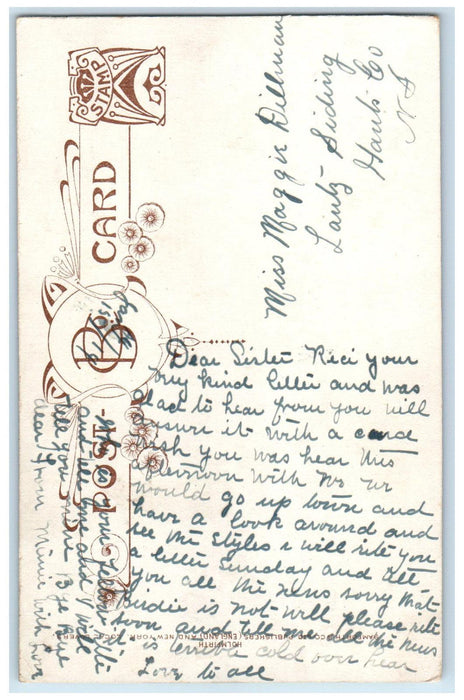 STAMP
POST-CARD
Miss Maggie Dillman
Lantz Siding
Hants Co
N S
Dear Sister Reci your
very kind letter and was
glad to hear from you will
ansure it with a card
wish you was hear this
afternoon with me we
would go up town and
have a look around and
see the styles i will rite you
a letter Sunday and tell
you all the news sorry that
Birdie is not will please rite
soon and tell me all the news
is terrible cold over hear
Love to all
who is your fellow
and tell me and I will
tell you mine is
dear from Minie with love
BAMFORTH & CO LTD PUBLISHERS (ENGLAND) AND NEW YORK
HOLMFIRTH